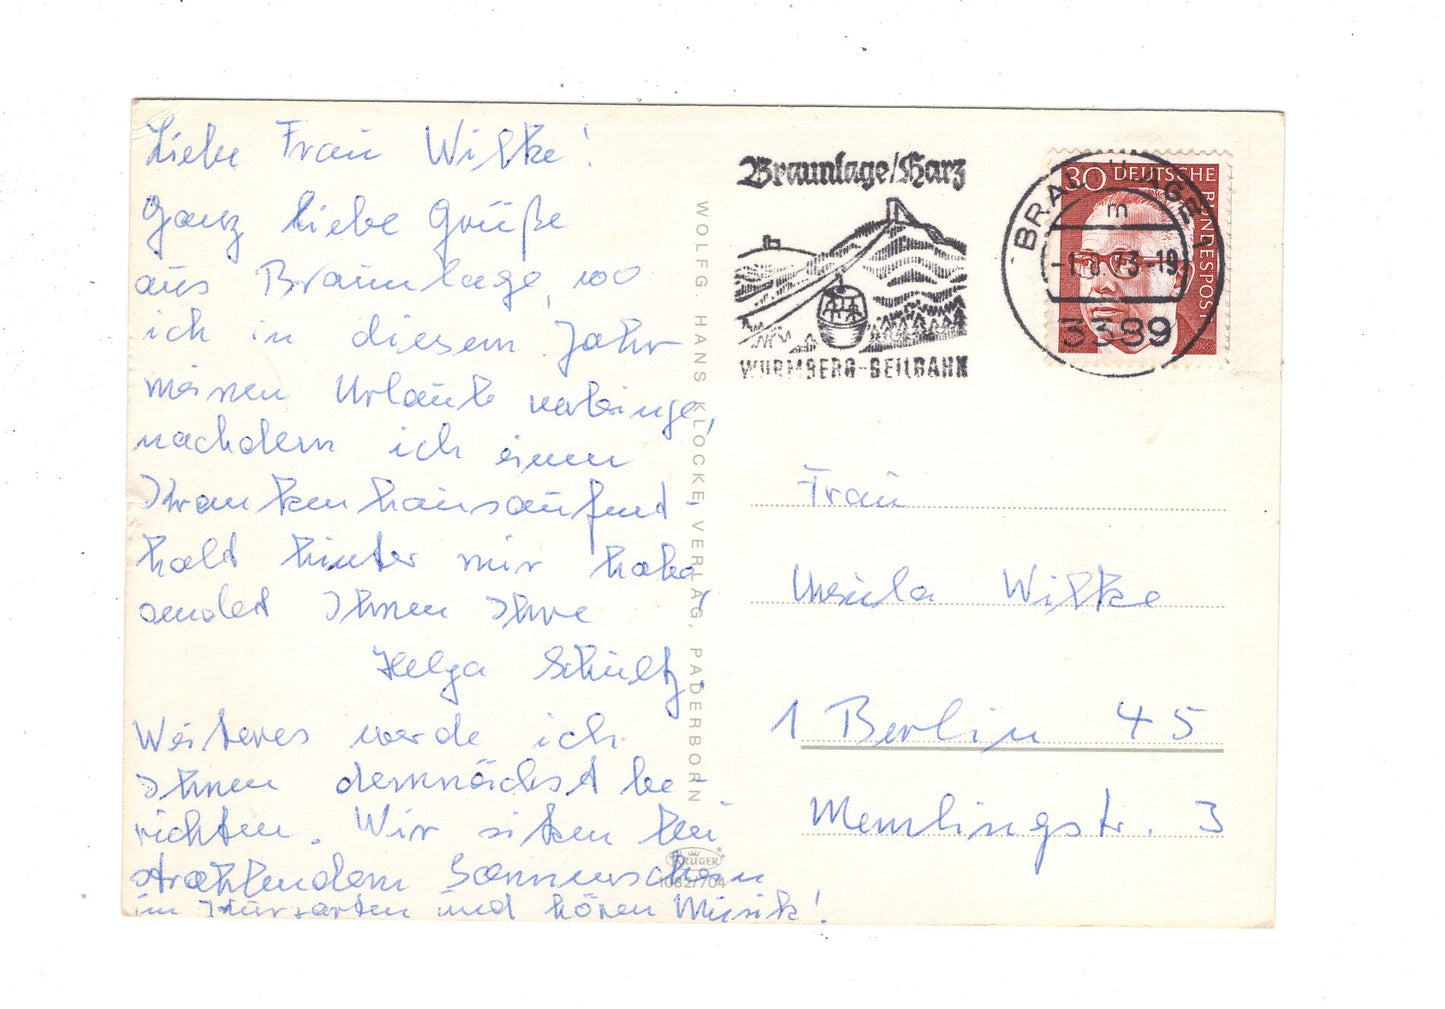 Liebe Frau Wilke!
Ganz liebe Grüße
aus Braunlage, wo
ich in diesem Jahr
meinen Urlaub verbringe,
nachdem ich einen
Krankenhausaufent-
halt hinter mir habe,
sendet Ihnen Ihre
Helga Schultz.
Weiteres werde ich
Ihnen demnächst be-
richten. Wir sitzen bei
strahlendem Sonnenschein
im Kurgarten und hören Musik!
WOLFG. HANS KLOCKE VERLAG, PADERBORN
KRÜGER
1082/704
Braunlage/Harz
WURMBERG-SEILBAHN
BRAUNLAGE 1
m
73-19
3389
30 DEUTSCHE BUNDESPOST
Frau
Ursula Wilke
1 Berlin 45
Memlingstr. 3